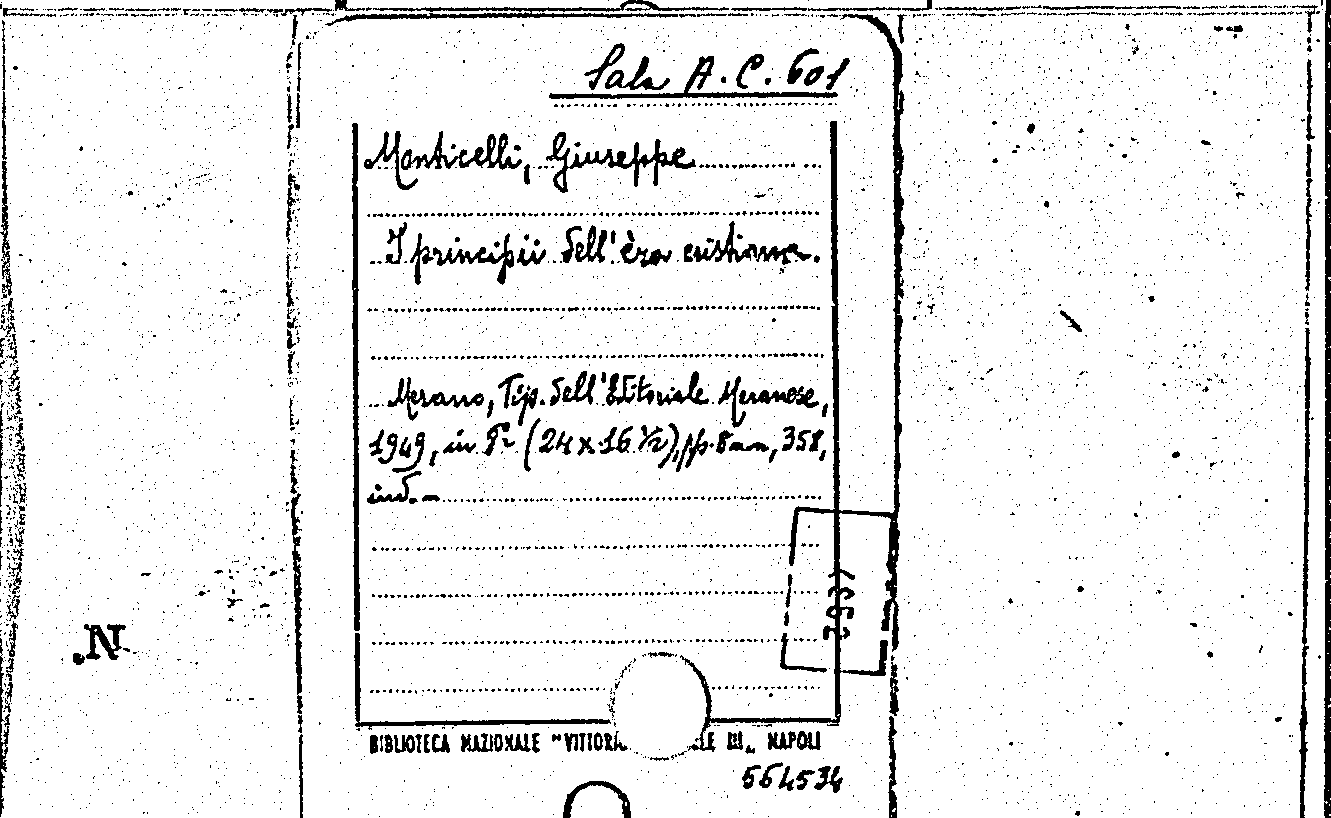 Sala A.C. 601
Monticelli, Giuseppe
I principii dell'èra cristiana.
Merano, Tip. dell'Editoriale Meranese,
1949, in 8º (24 x 16 ½), pp. 8 nn, 358,
ind. –
N.
BIBLIOTECA NAZIONALE "VITTORI LE III„ NAPOLI
564534